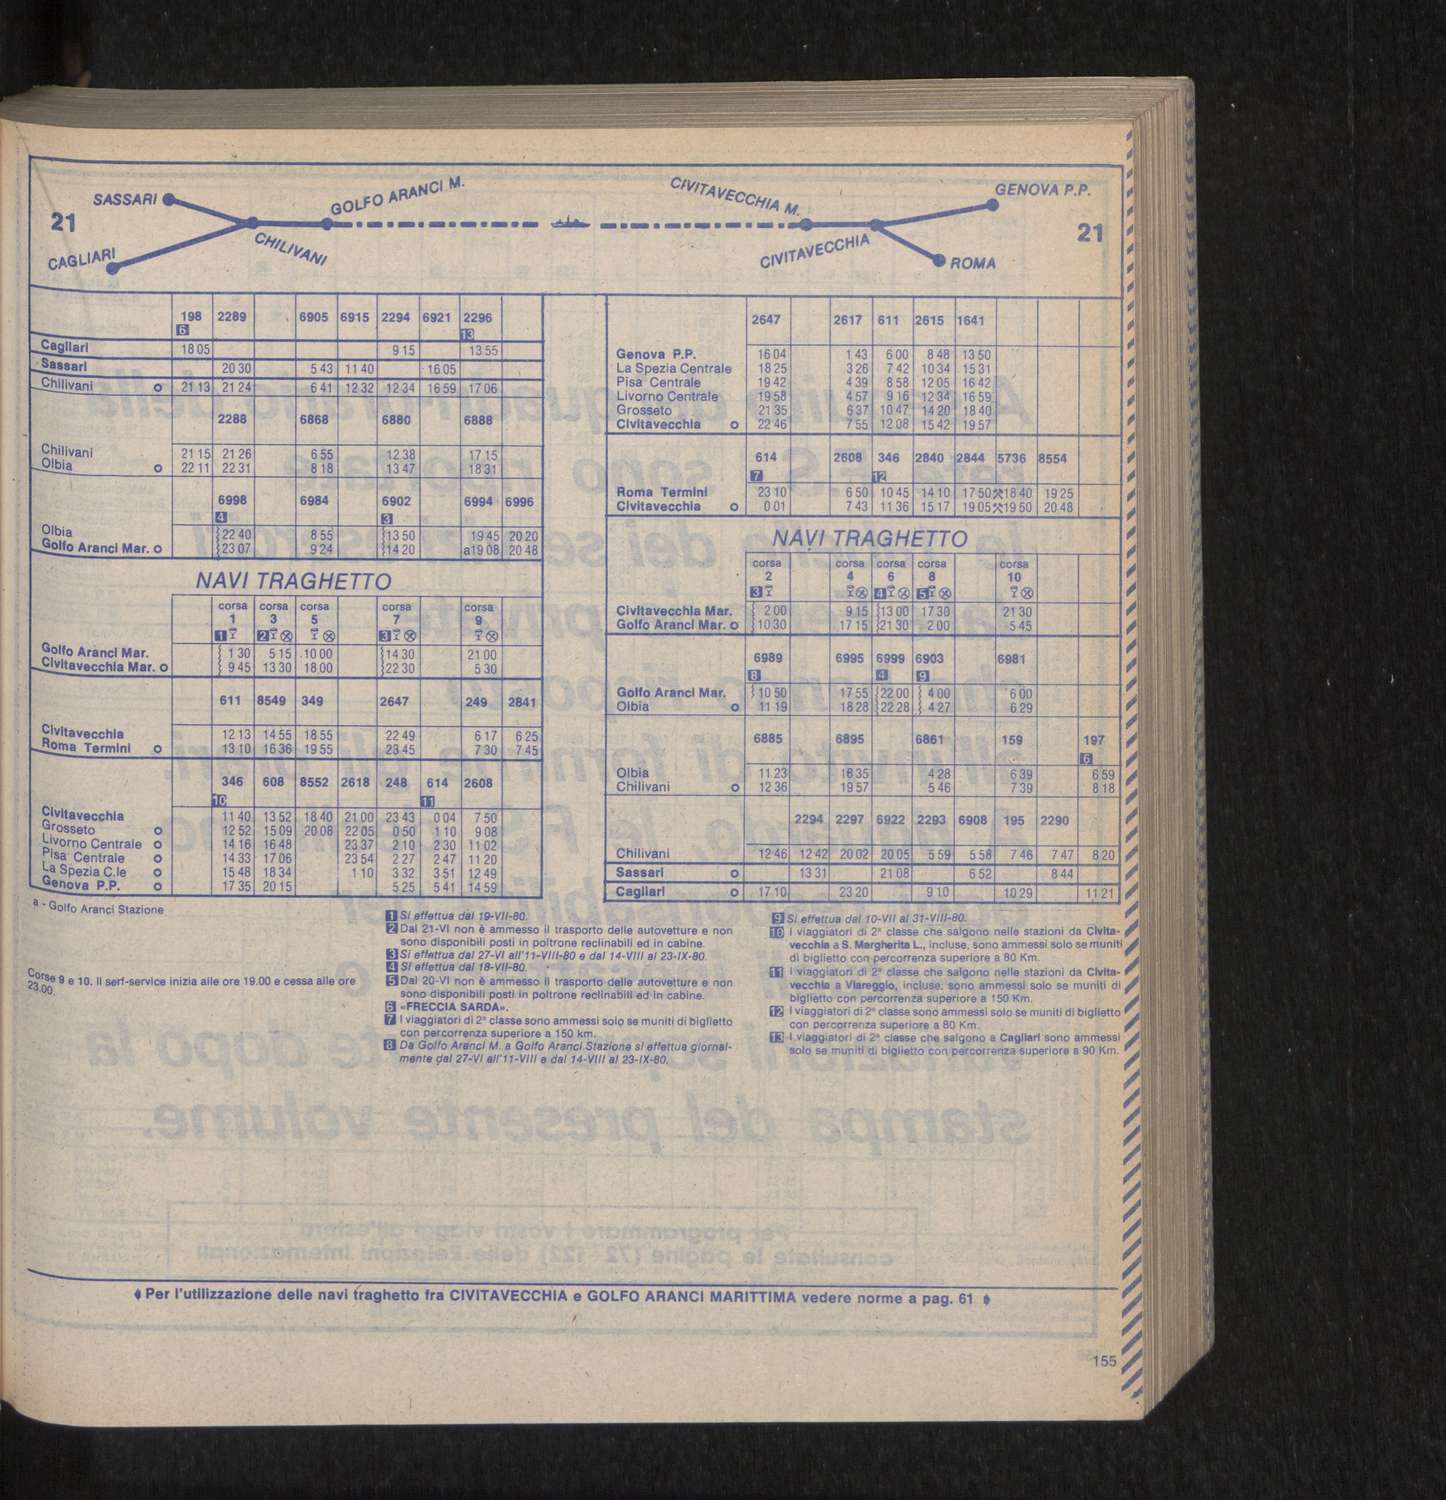 21
SASSARI
GOLFO ARANCI M.
CAGLIARI
CHILIVANI
CIVITAVECCHIA M.
GENOVA P.P.
CIVITAVECCHIA
ROMA
21
198 2289 6905 6915 2294 6921 2296
6 13
Cagliari 18 05 9 15 13 55
Sassari 20 30 5 43 11 40 16 05
Chilivani o 21 13 21 24 6 41 12 32 12 34 16 59 17 06
2288 6868 6880 6888
Chilivani 21 15 21 26 6 55 12 38 17 15
Olbia o 22 11 22 31 8 18 13 47 18 31
6998 6984 6902 6994 6996
4 3
Olbia 22 40 8 55 13 50 19 45 20 20
Golfo Aranci Mar. o 23 07 9 24 14 20 a19 08 20 48
NAVI TRAGHETTO
corsa corsa corsa corsa corsa
1 3 5 7 9
1 2 3
Golfo Aranci Mar. 1 30 5 15 10 00 14 30 21 00
Civitavecchia Mar. o 9 45 13 30 18 00 22 30 5 30
611 8549 349 2647 249 2841
Civitavecchia 12 13 14 55 18 55 22 49 6 17 6 25
Roma Termini o 13 10 16 36 19 55 23 45 7 30 7 45
346 608 8552 2618 248 614 2608
10 11
Civitavecchia 11 40 13 52 18 40 21 00 23 43 0 04 7 50
Grosseto o 12 52 15 09 20 08 22 05 0 50 1 10 9 08
Livorno Centrale o 14 16 16 48 23 37 2 10 2 30 11 02
Pisa Centrale o 14 33 17 06 23 54 2 27 2 47 11 20
La Spezia C.le o 15 48 18 34 1 10 3 32 3 51 12 49
Genova P.P. o 17 35 20 15 5 25 5 41 14 59
a - Golfo Aranci Stazione
Corse 9 e 10. Il serf-service inizia alle ore 19.00 e cessa alle ore
23.00.
1 Si effettua dal 19-VII-80.
2 Dal 21-VI non è ammesso il trasporto delle autovetture e non
sono disponibili posti in poltrone reclinabili ed in cabine.
3 Si effettua dal 27-VI all'11-VIII-80 e dal 14-VIII al 23-IX-80.
4 Si effettua dal 18-VII-80.
5 Dal 20-VI non è ammesso il trasporto delle autovetture e non
sono disponibili posti in poltrone reclinabili ed in cabine.
6 «FRECCIA SARDA».
7 I viaggiatori di 2ª classe sono ammessi solo se muniti di biglietto
con percorrenza superiore a 150 km.
8 Da Golfo Aranci M. a Golfo Aranci Stazione si effettua giornal-
mente dal 27-VI all'11-VIII e dal 14-VIII al 23-IX-80.
2647 2617 611 2615 1641
Genova P.P. 16 04 1 43 6 00 8 48 13 50
La Spezia Centrale 18 25 3 26 7 42 10 34 15 31
Pisa Centrale 19 42 4 39 8 58 12 05 16 42
Livorno Centrale 19 58 4 57 9 16 12 34 16 59
Grosseto 21 35 6 37 10 47 14 20 18 40
Civitavecchia o 22 46 7 55 12 08 15 42 19 57
614 2608 346 2840 2844 5736 8554
7 12
Roma Termini 23 10 6 50 10 45 14 10 17 50 ⚒18 40 19 25
Civitavecchia o 0 01 7 43 11 36 15 17 19 05 ⚒19 50 20 48
NAVI TRAGHETTO
corsa corsa corsa corsa corsa
2 4 6 8 10
3 4 5
Civitavecchia Mar. 2 00 9 15 13 00 17 30 21 30
Golfo Aranci Mar. o 10 30 17 15 21 30 2 00 5 45
6989 6995 6999 6903 6981
8 4 9
Golfo Aranci Mar. 10 50 17 55 22 00 4 00 6 00
Olbia o 11 19 18 28 22 28 4 27 6 29
6885 6895 6861 159 197
6
Olbia 11.23 18 35 4 28 6 39 6 59
Chilivani o 12 36 19 57 5 46 7 39 8 18
2294 2297 6922 2293 6908 195 2290
Chilivani 12 46 12 42 20 02 20 05 5 59 5 58 7 46 7 47 8 20
Sassari o 13 31 21 08 6 52 8 44
Cagliari o 17 10 23 20 9 10 10 29 11 21
9 Si effettua dal 10-VII al 31-VIII-80.
10 I viaggiatori di 2ª classe che salgono nelle stazioni da Civita-
vecchia a S. Margherita L., incluse, sono ammessi solo se muniti
di biglietto con percorrenza superiore a 80 Km.
11 I viaggiatori di 2ª classe che salgono nelle stazioni da Civita-
vecchia a Viareggio, incluse, sono ammessi solo se muniti di
biglietto con percorrenza superiore a 150 Km.
12 I viaggiatori di 2ª classe sono ammessi solo se muniti di biglietto
con percorrenza superiore a 80 Km.
13 I viaggiatori di 2ª classe che salgono a Cagliari sono ammessi
solo se muniti di biglietto con percorrenza superiore a 90 Km.
Per l'utilizzazione delle navi traghetto fra CIVITAVECCHIA e GOLFO ARANCI MARITTIMA vedere norme a pag. 61
155